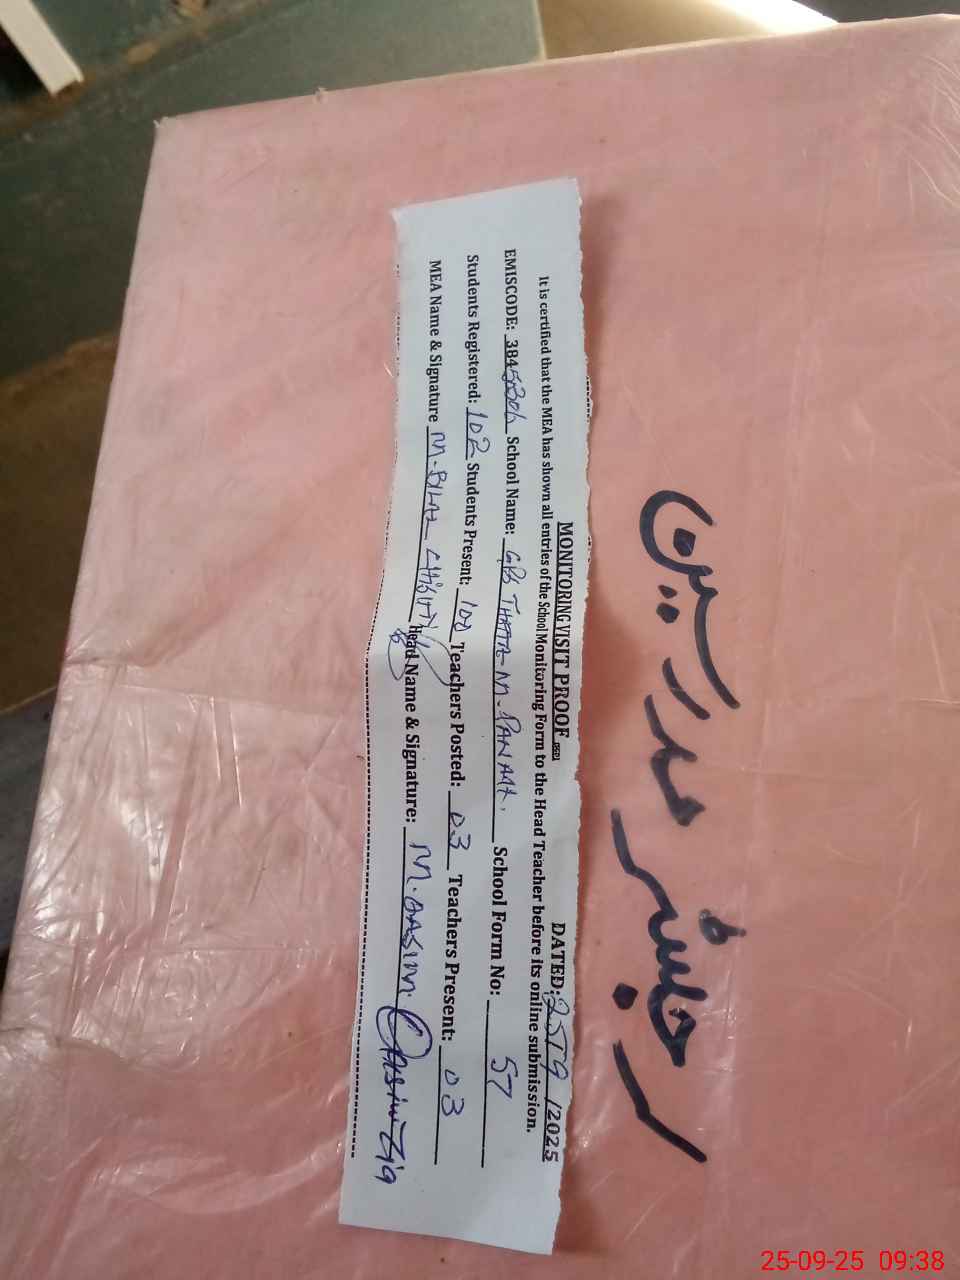 MONITORING VISIT PROOF DATED: 25/9 /2025
It is certified that the MEA has shown all entries of the School Monitoring Form to the Head Teacher before its online submission.
EMISCODE: 384 School Name: GPS THATTA M. PANAH. School Form No: 57
Students Registered: 102 Students Present: 100 Teachers Posted: 03 Teachers Present: 03
MEA Name & Signature M. BILAL Head Name & Signature: M. QASIM.
رجسٹر مدرسین
25-09-25 09:38